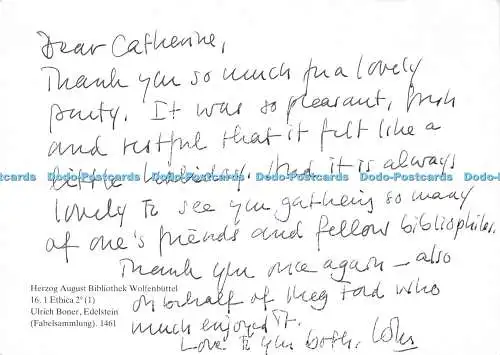 Dear Catherine,
Thank you so much for a lovely
party. It was so pleasant, fresh
and restful that it felt like a
little holiday. And it is always
Dodo-Postcards Dodo-Postcards Dodo-Postcards Dodo-Postcards Dodo-Postcards
lovely to see you gathering so many
of one's friends and fellow bibliophiles.
Thank you once again – also
on behalf of Meg Ford who
much enjoyed it.
Love to you both.
Herzog August Bibliothek Wolfenbüttel
16. 1 Ethica 2° (1)
Ulrich Boner, Edelstein
(Fabelsammlung). 1461